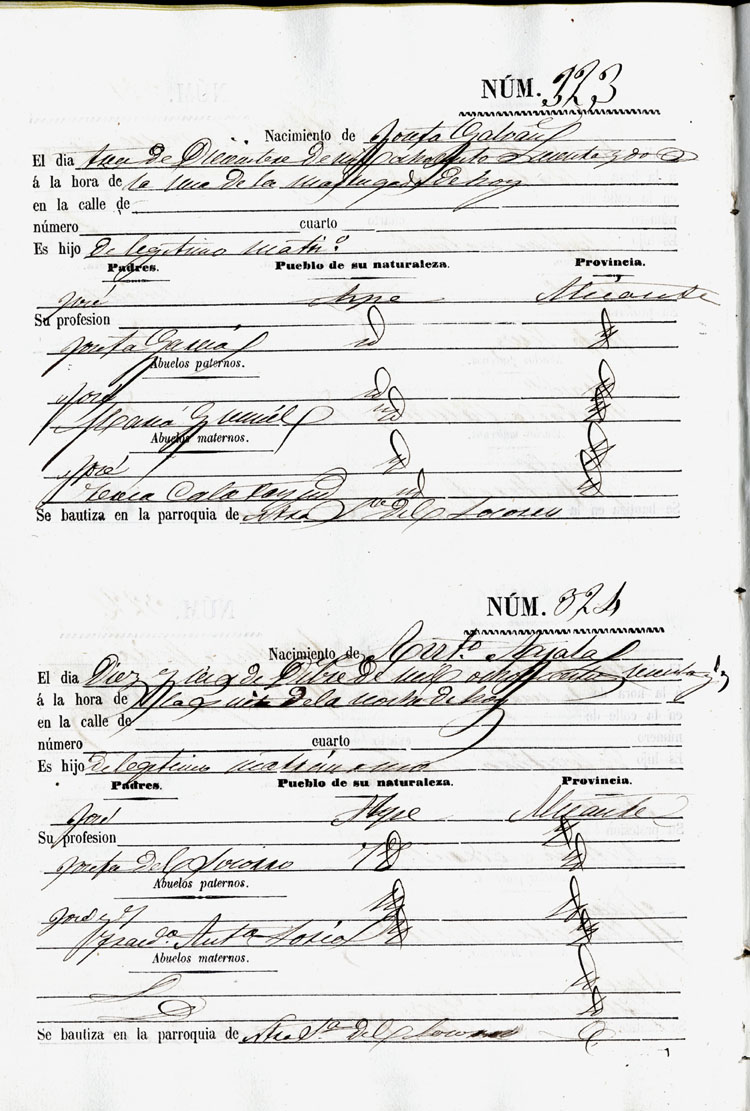 NÚM. 323
Nacimiento de Josefa Galvañ
El dia tres de Diciembre de mil ochocientos y dos
á la hora de la una de la madrugada de hoy
en la calle de
número cuarto
Es hijo de legitimo matri.º
Padres. Pueblo de su naturaleza. Provincia.
José Aspe Alicante
Su profesion
Josefa Garcia id id
Abuelos paternos.
José id id
Maria id id
Abuelos maternos.
José id id
Calatayud id id
Se bautiza en la parroquia de Ntra Sra del Socorro
NÚM. 324
Nacimiento de Ant.º
El dia Diez y de Dibre de mil ochocientos
á la hora de de la noche de hoy
en la calle de
número cuarto
Es hijo de legitimo matrimonio
Padres. Pueblo de su naturaleza. Provincia.
José Aspe Alicante
Su profesion
Josefa del Socorro id id
Abuelos paternos.
José id id
id id
Abuelos maternos.
id
id
Se bautiza en la parroquia de Ntra Sra del Socorro